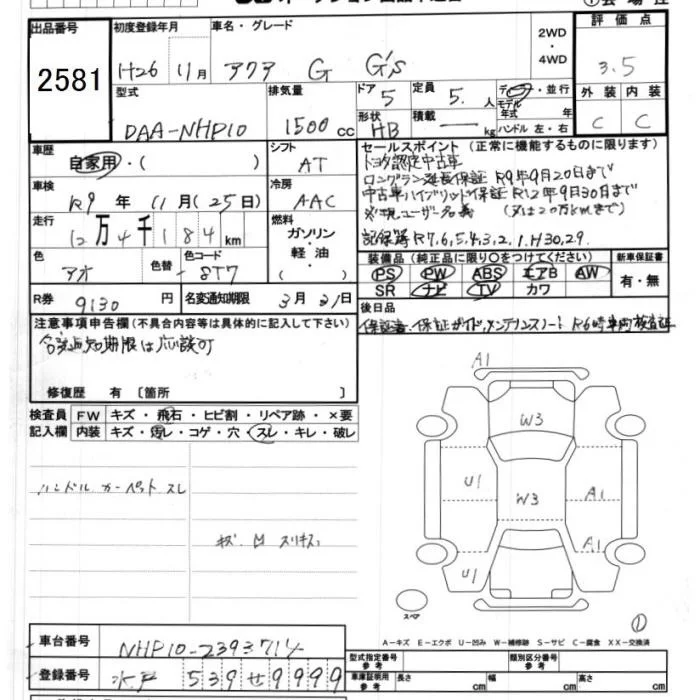 出品番号 初度登録年月 車名・グレード 2WD・4WD 評価点
2581 H26 11月 アクア G G's 3.5
型式 排気量 ドア 5 定員 5. 人 デ・並行 外装 内装
DAA-NHP10 1500cc 形状 HB 積載 — kg モデル年式 年 ハンドル 左・右 C C
車歴 シフト セールスポイント (正常に機能するものに限り)
自家用・( ) AT トヨタ認定中古車
ロングラン延長保証 R9年9月20日まで
車検 冷房 中古車ハイブリッド保証 R12年9月30日まで
R9年11月(25日) AAC (又は20万kmまで)
走行 燃料
12万4千184km ガソリン・軽油・( ) 記録簿 R7,6,5,4,3,2,1.H30,29.
色 色替 色コード 装備品 (純正品に限り○をつけてください) 新車保証書
アオ 8T7 PS PW ABS エアB AW 有・無
SR ナビ TV カワ
R券 9130円 名変通知期限 3月31日 後日品
保証書・保証ガイド,メンテナンスノート R6時車両検査証
注意事項申告欄(不具合内容等は具体的に記入して下さい)
修復歴 有 〔箇所 〕
検査員記入欄 FW キズ・飛石・ヒビ割・リペア跡・×要
内装 キズ・汚レ・コゲ・穴・スレ・キレ・破レ
A1
W3
U1 W3 A1
A1
U1
ハンドル カーペット スレ
キズ 凹 スリキズ
スペア
①
A-キズ E-エクボ U-凹み W-補修跡 S-サビ C-腐食 XX-交換済
車台番号 NHP10-2393714
型式指定番号 参考 類別区分番号 参考
登録番号 水戸 539せ9999
車庫証明用 参考 長さ cm 幅 cm 高さ cm